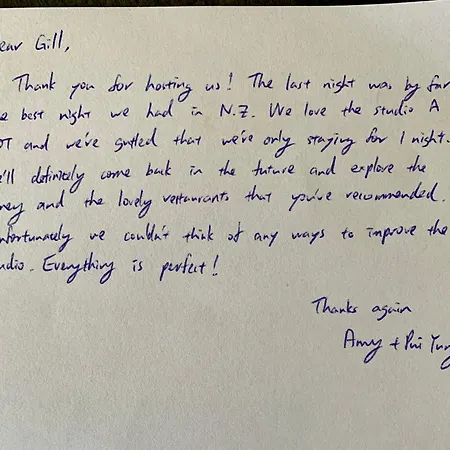 ear Gill,
Thank you for hosting us! The last night was by far
e best night we had in N.Z. We love the studio A
OT and we've gutted that we're only staying for 1 night.
e'll definitely come back in the future and explore the
ney and the lovely restaurants that you've recommended.
nfortunately we couldn't think of any ways to improve the
udio. Everything is perfect!
Thanks again
Amy + Pui Yung